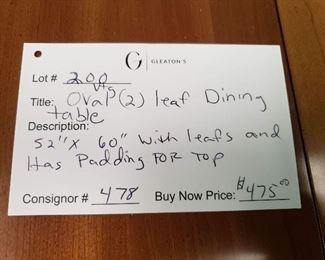 G | GLEATON'S
Lot # 200
Title: Oval (2) leaf Dining
table
Description:
52" x 60" with leafs and
Has Padding FOR TOP
Consignor # 478 Buy Now Price: $475.00